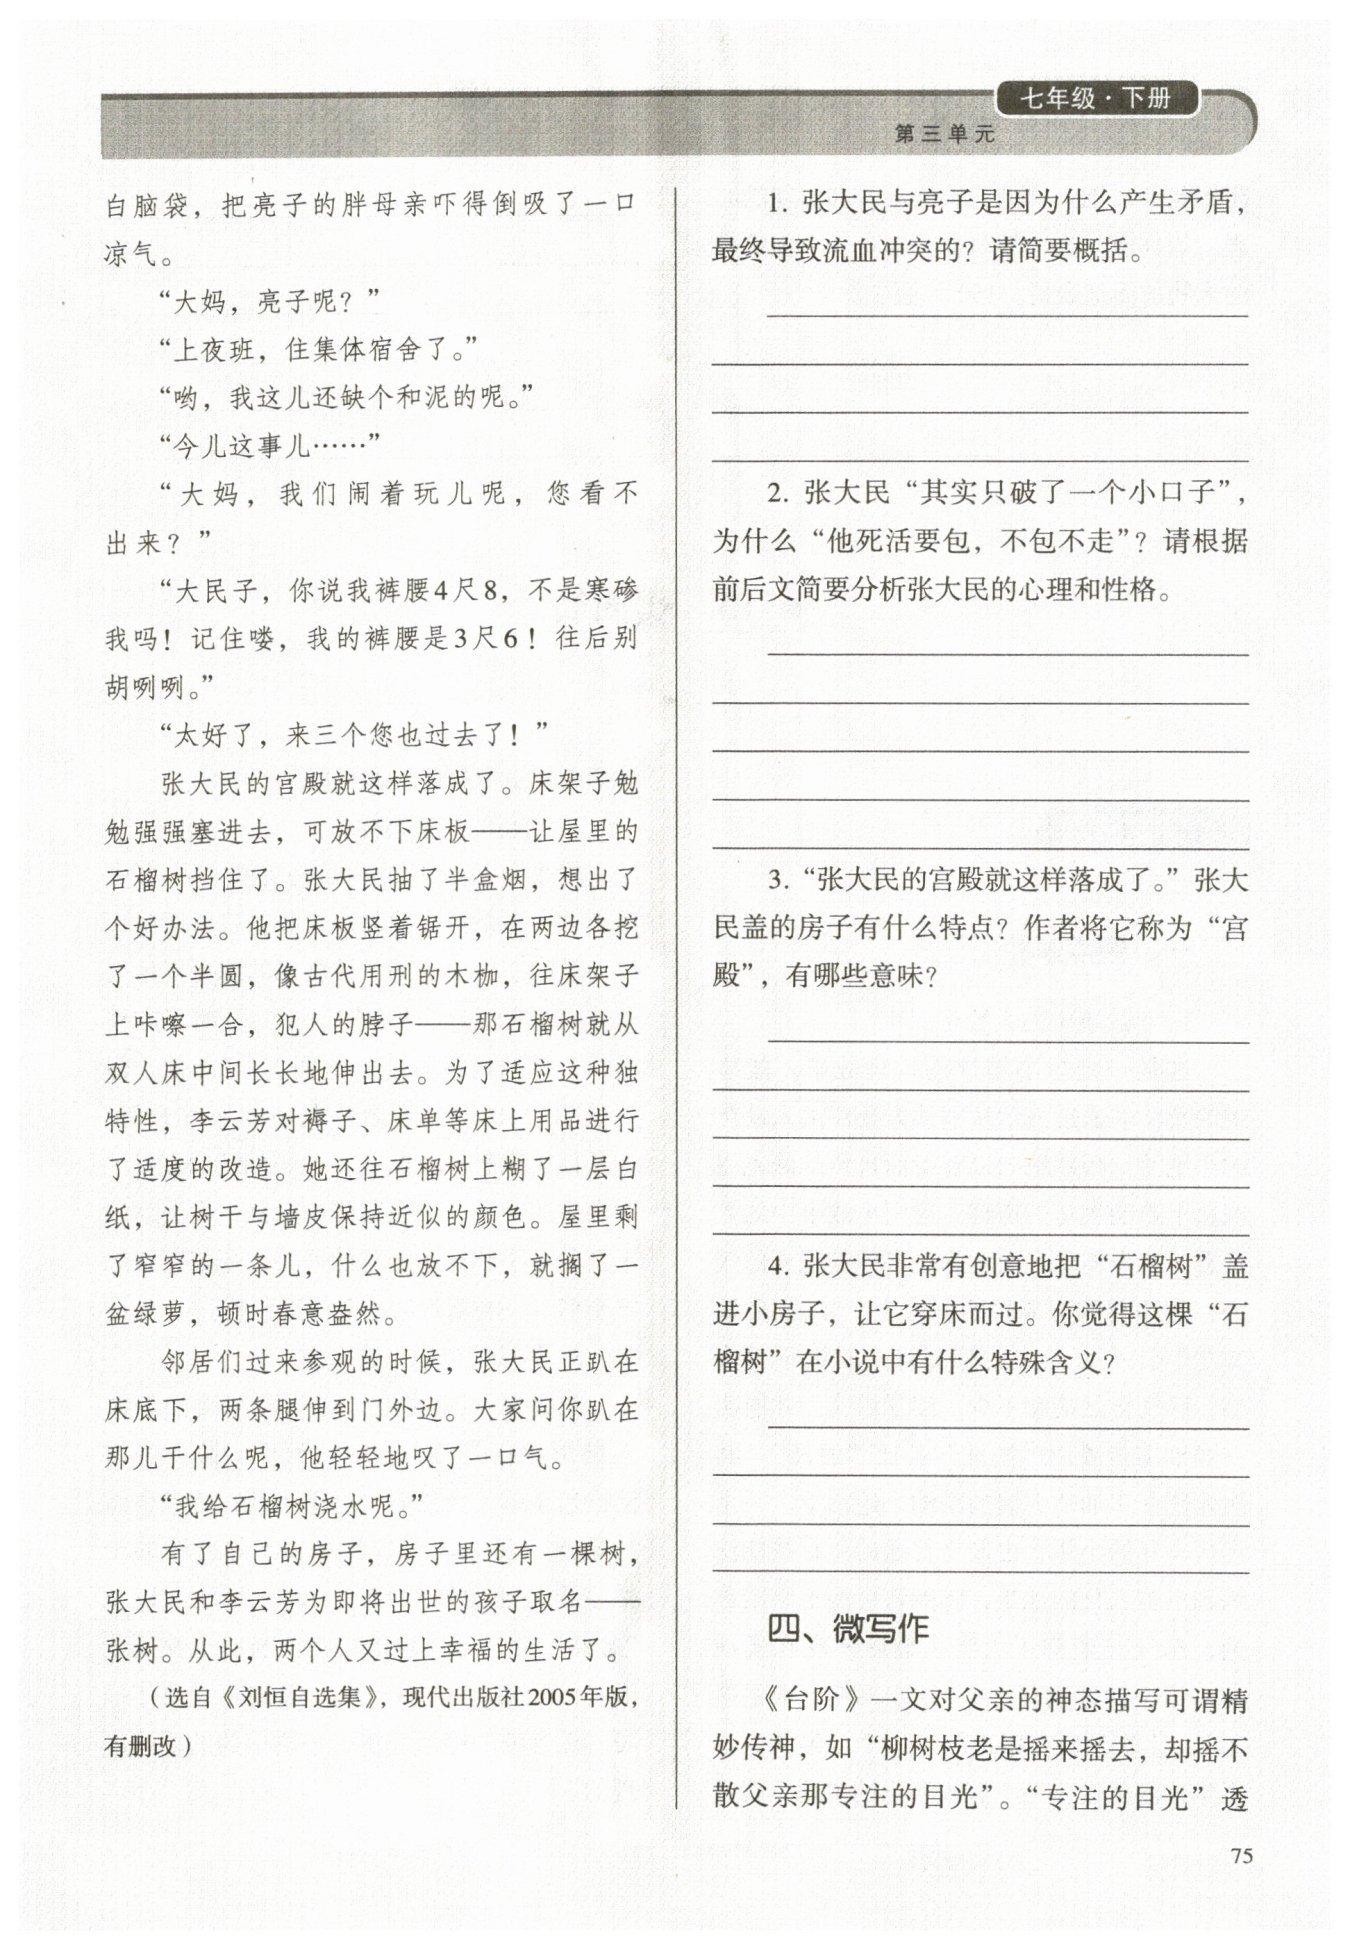 七年级·下册
第三单元
白脑袋，把亮子的胖母亲吓得倒吸了一口
凉气。
“大妈，亮子呢？”
“上夜班，住集体宿舍了。”
“哟，我这儿还缺个和泥的呢。”
“今儿这事儿……”
“大妈，我们闹着玩儿呢，您看不
出来？”
“大民子，你说我裤腰4尺8，不是寒碜
我吗！记住喽，我的裤腰是3尺6！往后别
胡咧咧。”
“太好了，来三个您也过去了！”
张大民的宫殿就这样落成了。床架子勉
勉强强塞进去，可放不下床板——让屋里的
石榴树挡住了。张大民抽了半盒烟，想出了
个好办法。他把床板竖着锯开，在两边各挖
了一个半圆，像古代用刑的木枷，往床架子
上咔嚓一合，犯人的脖子——那石榴树就从
双人床中间长长地伸出去。为了适应这种独
特性，李云芳对褥子、床单等床上用品进行
了适度的改造。她还往石榴树上糊了一层白
纸，让树干与墙皮保持近似的颜色。屋里剩
了窄窄的一条儿，什么也放不下，就搁了一
盆绿萝，顿时春意盎然。
邻居们过来参观的时候，张大民正趴在
床底下，两条腿伸到门外边。大家问你趴在
那儿干什么呢，他轻轻地叹了一口气。
“我给石榴树浇水呢。”
有了自己的房子，房子里还有一棵树，
张大民和李云芳为即将出世的孩子取名——
张树。从此，两个人又过上幸福的生活了。
（选自《刘恒自选集》，现代出版社2005年版，
有删改）
1. 张大民与亮子是因为什么产生矛盾，
最终导致流血冲突的？请简要概括。
2. 张大民“其实只破了一个小口子”，
为什么“他死活要包，不包不走”？请根据
前后文简要分析张大民的心理和性格。
3. “张大民的宫殿就这样落成了。”张大
民盖的房子有什么特点？作者将它称为“宫
殿”，有哪些意味？
4. 张大民非常有创意地把“石榴树”盖
进小房子，让它穿床而过。你觉得这棵“石
榴树”在小说中有什么特殊含义？
四、微写作
《台阶》一文对父亲的神态描写可谓精
妙传神，如“柳树枝老是摇来摇去，却摇不
散父亲那专注的目光”。“专注的目光”透
75